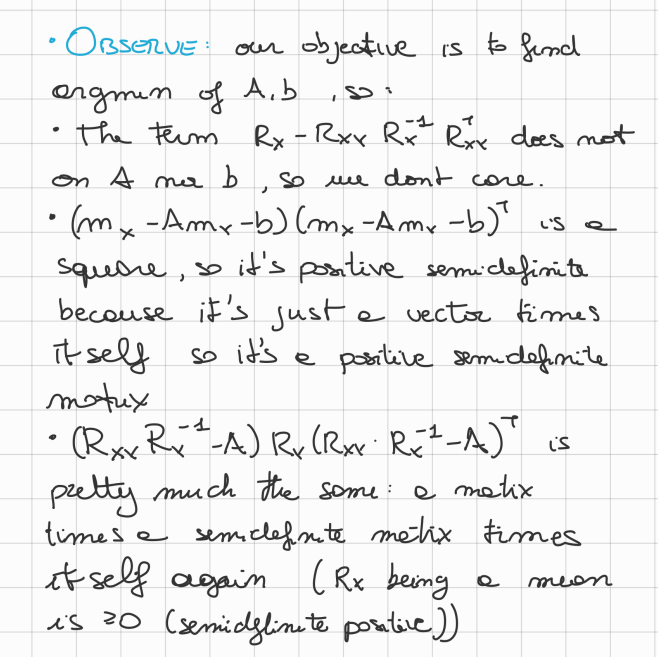 • OBSERVE: our objective is to find
argmin of A,b , so:
• The term Rx - Rxy Rx⁻¹ Rxyᵀ does not
on A nor b , so we dont care.
• (mx - Amy - b) (mx - Amy - b)ᵀ is a
square, so it's positive semidefinite
because it's just a vector times
itself so it's a positive semidefinite
matrix
• (Rxy Ry⁻¹ - A) Ry (Rxy · Ry⁻¹ - A)ᵀ is
pretty much the same: a matix
times a semidefinite matix times
itself again (Rx being a mean
is ≥0 (semidefinite positive))